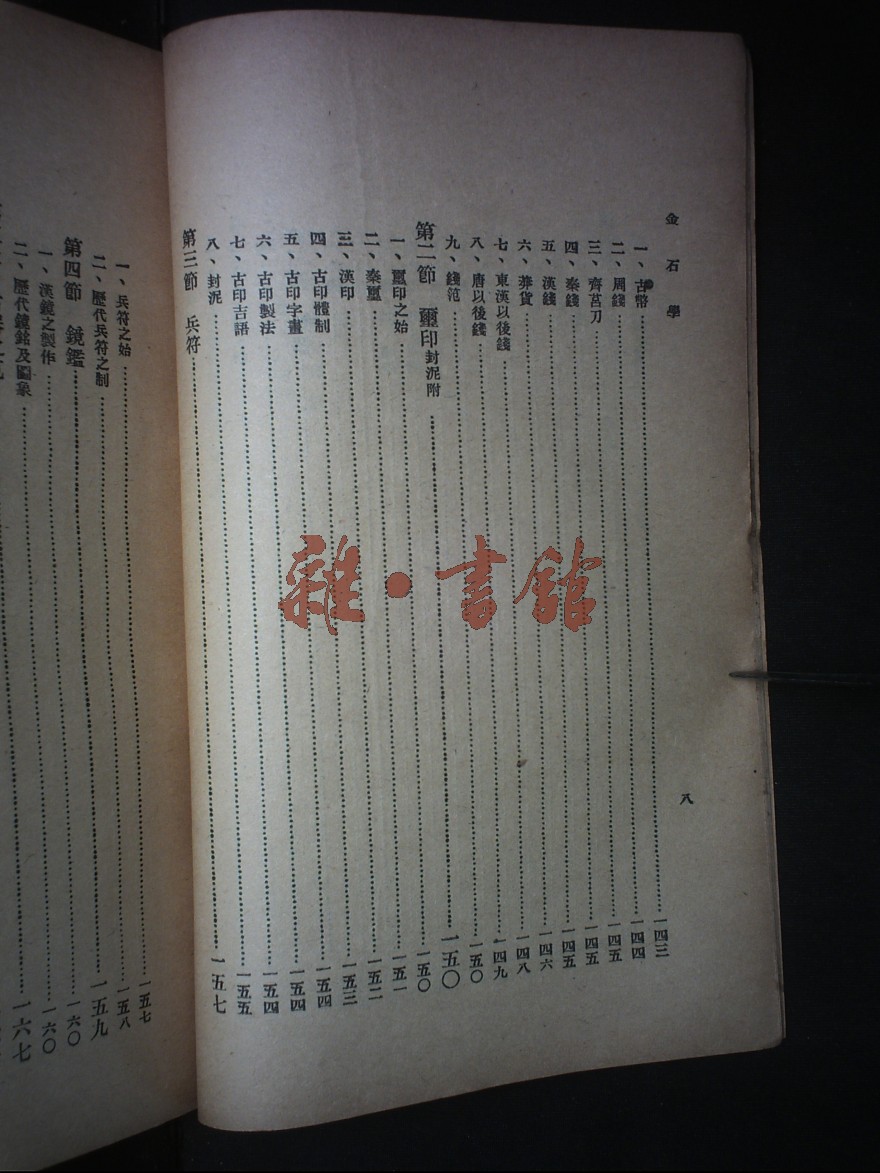 金石學
八
一、古幣……一四三
二、周錢……一四四
三、齊莒刀……一四五
四、秦錢……一四五
五、漢錢……一四五
六、莽貨……一四六
七、東漢以後錢……一四八
八、唐以後錢……一四九
九、錢范……一五〇
第二節 璽印封泥附……一五〇
一、璽印之始……一五〇
二、秦璽……一五一
三、漢印……一五二
四、古印體制……一五三
五、古印字畫……一五四
六、古印製法……一五四
七、古印吉語……一五四
八、封泥……一五五
第三節 兵符……一五七
一、兵符之始……一五七
二、歷代兵符之制……一五八
第四節 鏡鑑……一五九
一、漢鏡之製作……一六〇
二、歷代鏡銘及圖象……一六〇
一六七
雜·書館